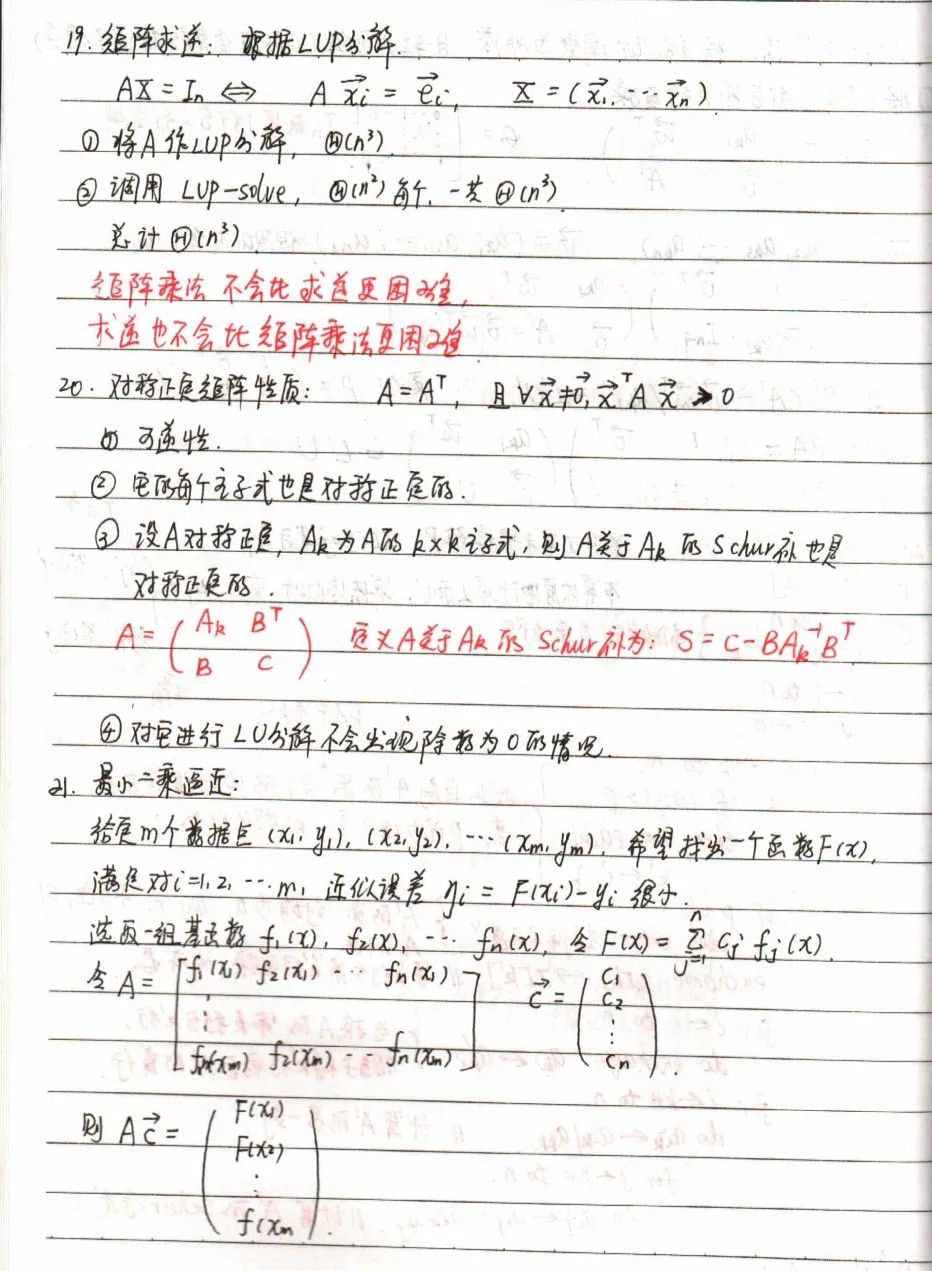 19. 矩阵求逆: 根据LUP分解.
AX = In ⇔ A x⃗i = e⃗i, X = (x⃗1, … x⃗n)
① 将A作LUP分解, Θ(n³)
② 调用 LUP-solve, Θ(n²)每个, 一共Θ(n³)
总计Θ(n³)
矩阵乘法不会比求逆更困难,
求逆也不会比矩阵乘法更困难
20. 对称正定矩阵性质: A=Aᵀ, 且∀x⃗≠0⃗, x⃗ᵀAx⃗ > 0
① 可逆性.
② 它的每个主子式也是对称正定的.
③ 设A对称正定, Ak为A的k×k主子式, 则A关于Ak的Schur补也是
对称正定的.
A = ( Ak Bᵀ
B C ) 定义A关于Ak的Schur补为: S = C - BAk⁻¹Bᵀ
④ 对它进行LU分解不会出现除数为0的情况.
21. 最小二乘逼近:
给定m个数据点 (x1, y1), (x2, y2), … (xm, ym), 希望找出一个函数F(x),
满足对i=1, 2, … m, 近似误差 ηi = F(xi) - yi 很小.
选取一组基函数 f1(x), f2(x), … fn(x), 令 F(x) = Σⁿj=1 cj fj(x)
令 A = [ f1(x1) f2(x1) … fn(x1)
⋮
f1(xm) f2(xm) … fn(xm) ] c⃗ = ( c1
c2
⋮
cn ).
则 Ac⃗ = ( F(x1)
F(x2)
⋮
f(xm ).